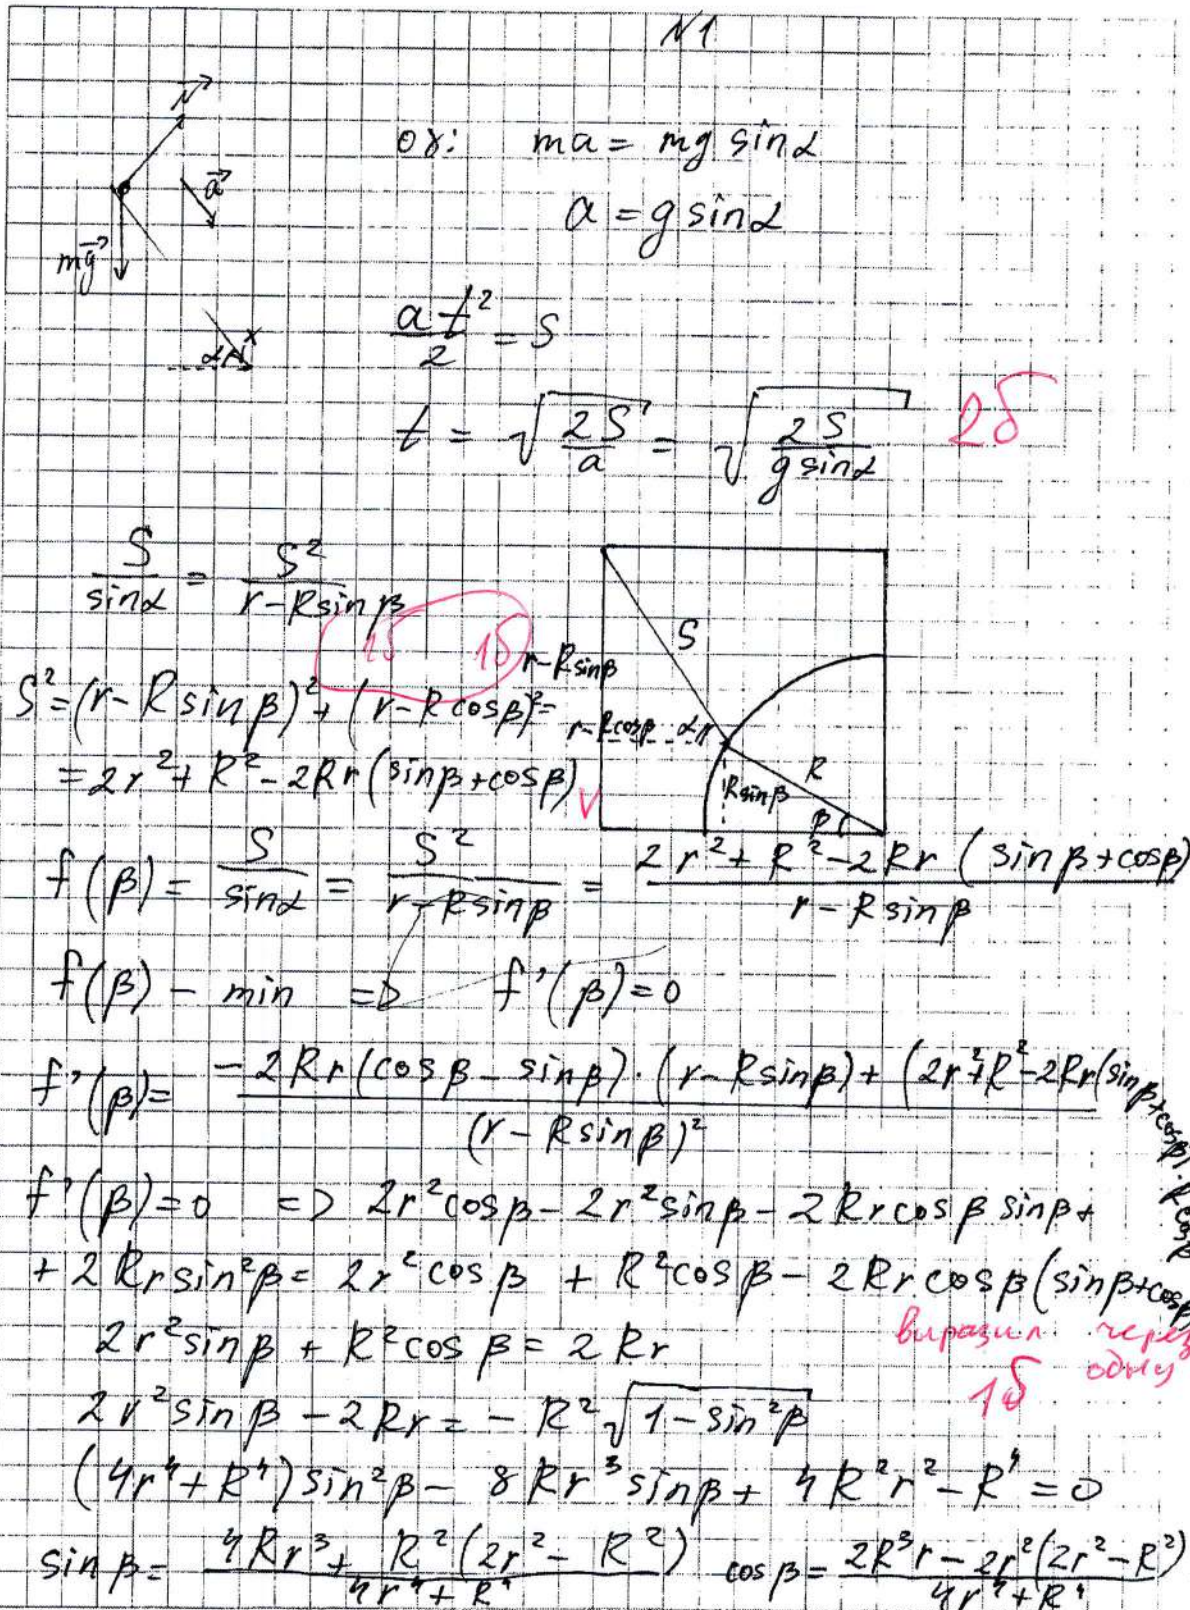 N1
N⃗
ox: ma = mg sinα
a⃗
a = g sinα
mg⃗
at²/2 = S
α x
t = √(2S/a) = √(2S/(g sinα)) 2б
S/sinα = S²/(r-Rsinβ)
1б 1б
S
r-Rsinβ
S² = (r-Rsinβ)² + (r-Rcosβ)² =
r-Rcosβ α
= 2r² + R² - 2Rr(sinβ+cosβ)
R
Rsinβ
β
f(β) = S/sinα = S²/(r-Rsinβ) = (2r² + R² - 2Rr(sinβ+cosβ))/(r-Rsinβ)
f(β) - min => f'(β)=0
f'(β) = (-2Rr(cosβ-sinβ)·(r-Rsinβ) + (2r²+R²-2Rr(sinβ+cosβ))·Rcosβ)/(r-Rsinβ)²
f'(β)=0 => 2r²cosβ - 2r²sinβ - 2Rrcosβ sinβ +
+ 2Rrsin²β = 2r²cosβ + R²cosβ - 2Rrcosβ(sinβ+cosβ)
2r²sinβ + R²cosβ = 2Rr
выразил через
одну
1б
2r²sinβ - 2Rr = -R²√(1-sin²β)
(4r⁴+R⁴)sin²β - 8Rr³sinβ + 4R²r² - R⁴ = 0
sinβ = (4Rr³ + R²(2r²-R²))/(4r⁴+R⁴) cosβ = (2R³r - 2r²(2r²-R²))/(4r⁴+R⁴)